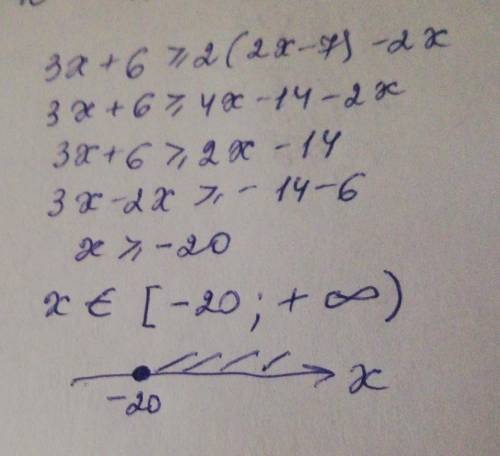 3x+6 ⩾ 2(2x-7) -2x
3x+6 ⩾ 4x-14-2x
3x+6 ⩾ 2x-14
3x-2x ⩾ -14-6
x ⩾ -20
x ∈ [-20; +∞)
-20 x